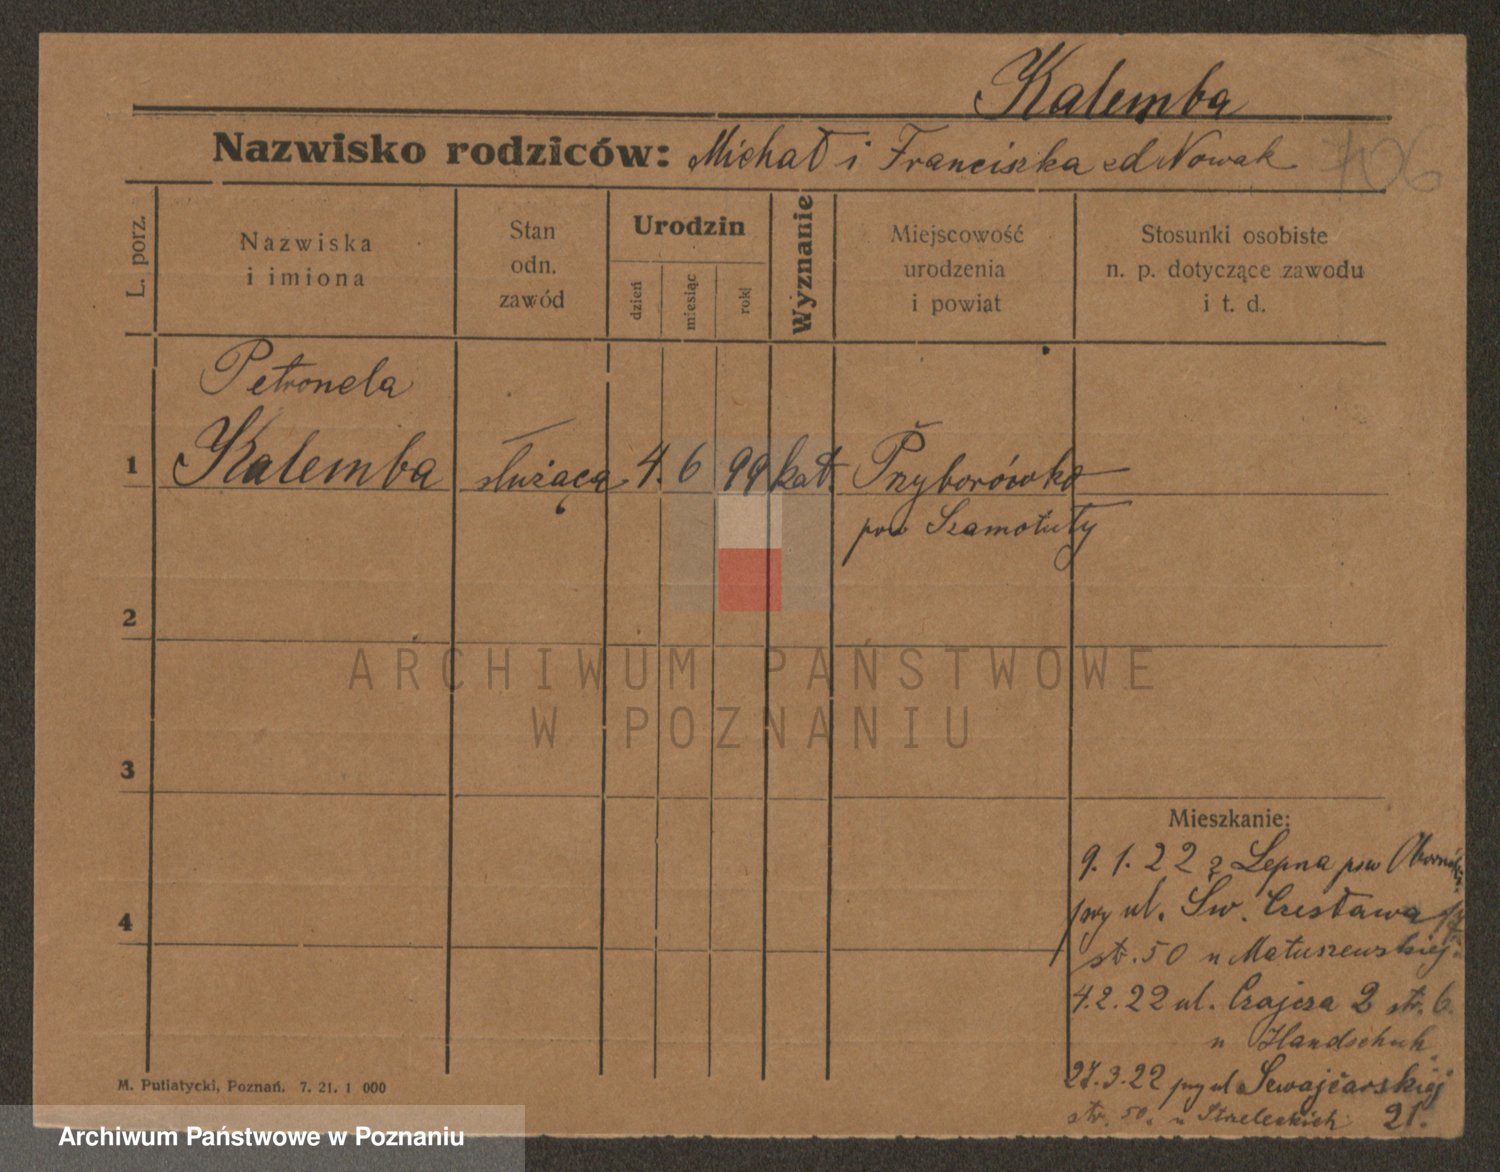 Kalemba
Nazwisko rodziców: Michał i Franciszka zd Nowak
706
L. porz.
Nazwiska
i imiona
Stan
odn.
zawód
Urodzin
dzień
miesiąc
rok
Wyznanie
Miejscowość
urodzenia
i powiat
Stosunki osobiste
n. p. dotyczące zawodu
i t. d.
Petronela
1 Kalemba służąca 4. 6 99 kat. Przyborówko
pow Szamotuły
2
ARCHIWUM PAŃSTWOWE
W POZNANIU
3
Mieszkanie:
9. 1. 22 z Lepna pow
4
przy ul. Św. Czesława
str. 50 u Matuszewskiej
4.2.22 ul. Czajcza 2 str. 6.
u Handschuh
27.3.22 przy ul Szwajcarskiej
str. 50. u Strzeleckich 21.
M. Putiatycki, Poznań. 7. 21. 1 000
Archiwum Państwowe w Poznaniu